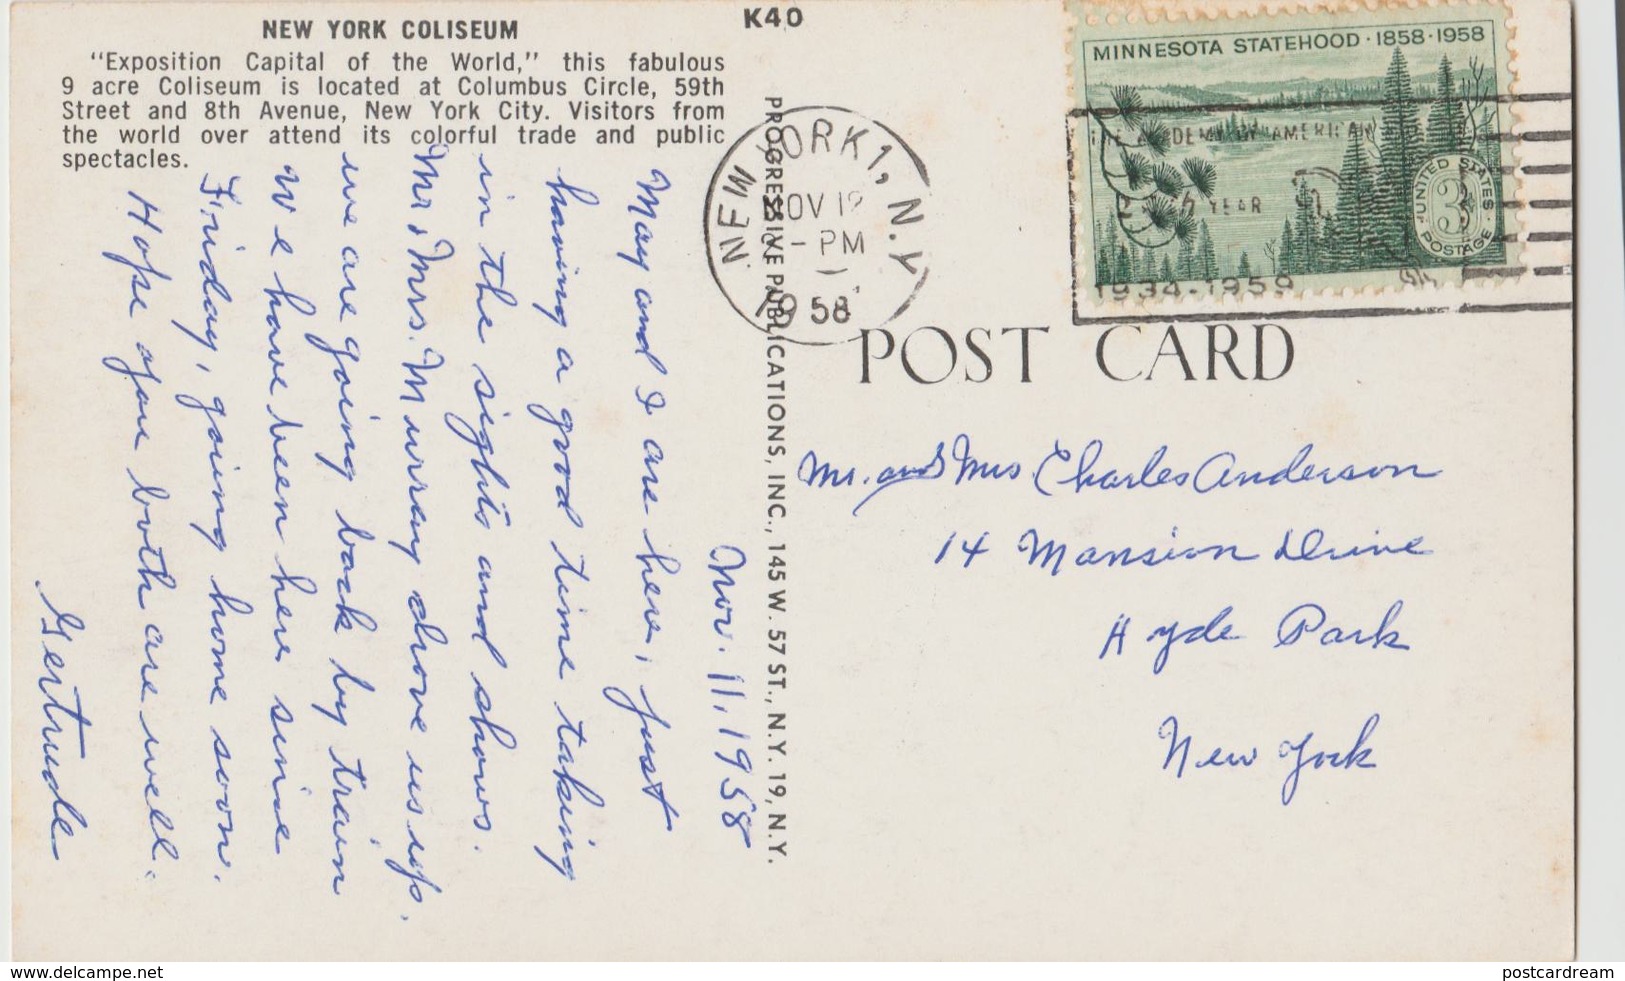 NEW YORK COLISEUM
"Exposition Capital of the World," this fabulous
9 acre Coliseum is located at Columbus Circle, 59th
Street and 8th Avenue, New York City. Visitors from
the world over attend its colorful trade and public
spectacles.
K40
PROGRESSIVE PUBLICATIONS, INC., 145 W. 57 ST., N.Y. 19, N.Y.
MINNESOTA STATEHOOD · 1858 · 1958
UNITED STATES
3¢
POSTAGE
NEW YORK 1, N.Y.
NOV 12
- PM
1958
THE ACADEMY OF AMERICAN
YEAR
1934-1959
POST CARD
Nov. 11, 1958
May and I are here, just
having a good time taking
in the sights and shows.
Mr & Mrs. Murray drove us up.
we are going back by train
We have been here since
Friday, going home soon.
Hope you both are well.
Gertrude
Mr. and Mrs Charles Anderson
14 Mansion Drive
Hyde Park
New York
www.delcampe.net
postcardream